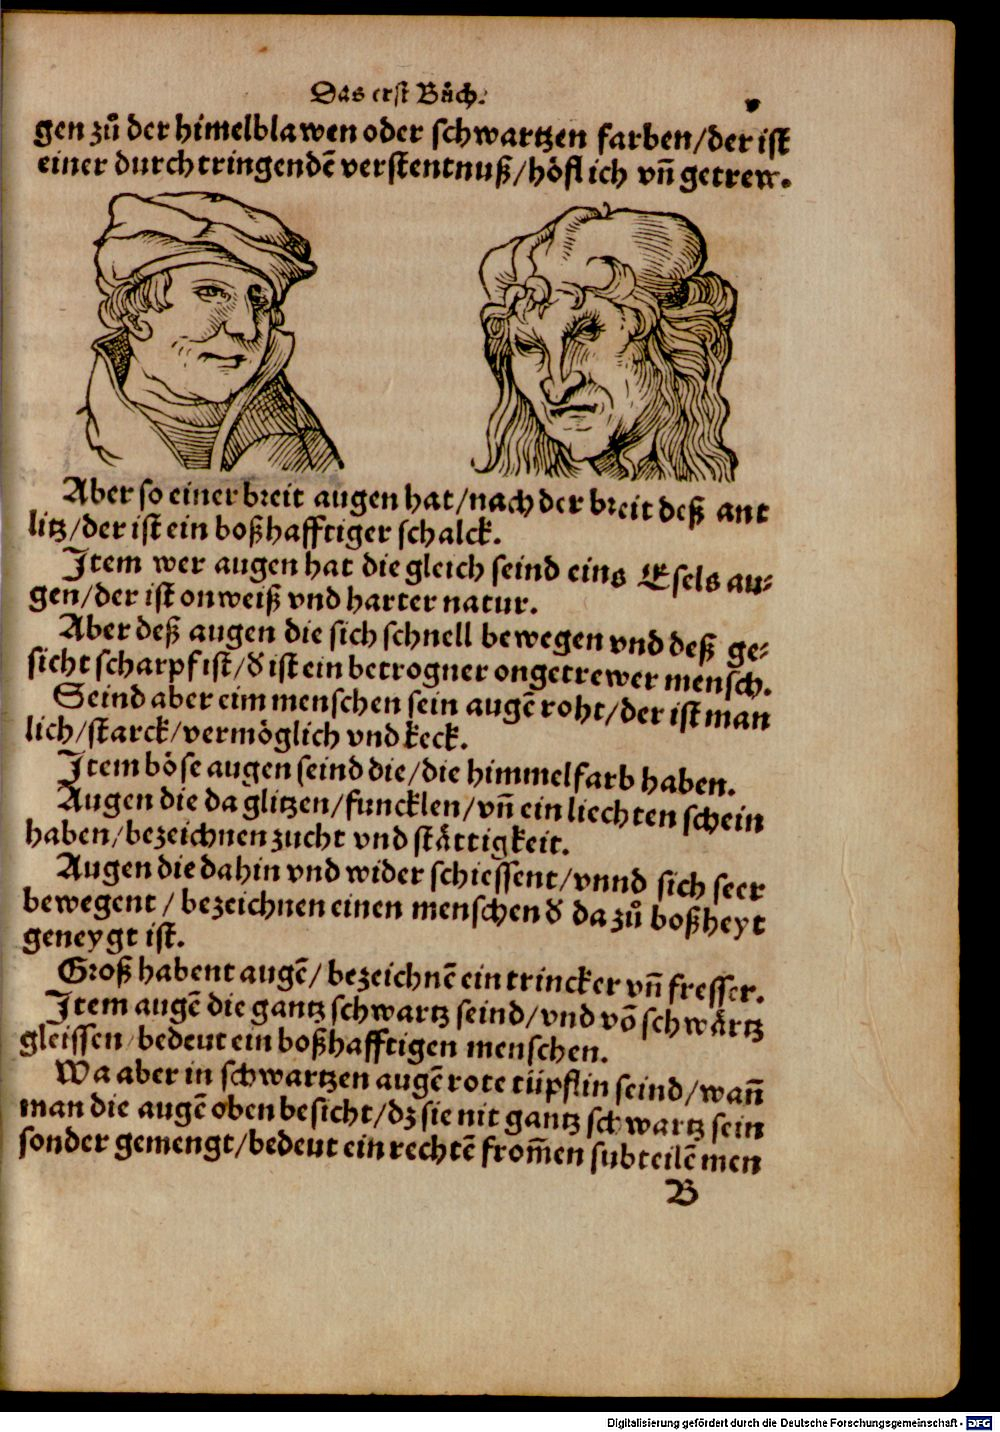 Das erst Bůch. v
gen zů der himelblawen oder schwartzen farben/der ist
einer durchtringendẽ verstentnuß/höflich vñ getrew.
Aber so einer breit augen hat/nach der breit deß ant
litz/der ist ein boßhafftiger schalck.
Item wer augen hat die gleich seind eins Esels au-
gen/der ist onweiß vnd harter natur.
Aber deß augen die sich schnell bewegen vnd deß ge-
sicht scharpf ist/d ist ein betrogner ongetrewer mensch.
Seind aber eim menschen sein augẽ roht/der ist man
lich/starck/vermöglich vnd keck.
Item böse augen seind die/die himmelfarb haben.
Augen die da glitzen/funcklen/vñ ein liechten schein
haben/bezeichnen zucht vnd stättigkeit.
Augen die dahin vnd wider schiessent/vnnd sich seer
bewegent/bezeichnen einen menschen d da zů boßheyt
geneygt ist.
Groß habent augẽ/bezeichnẽ ein trincker vñ fresser.
Item augẽ die gantz schwartz seind/vnd võ schwärtz
gleissen/bedeut ein boßhafftigen menschen.
Wa aber in schwartzen augẽ rote tüpflin seind/wañ
man die augẽ oben besicht/dz sie nit gantz schwartz sein
sonder gemengt/bedeut ein rechtẽ from̃en subteilẽ men
B
Digitalisierung gefördert durch die Deutsche Forschungsgemeinschaft - DFG